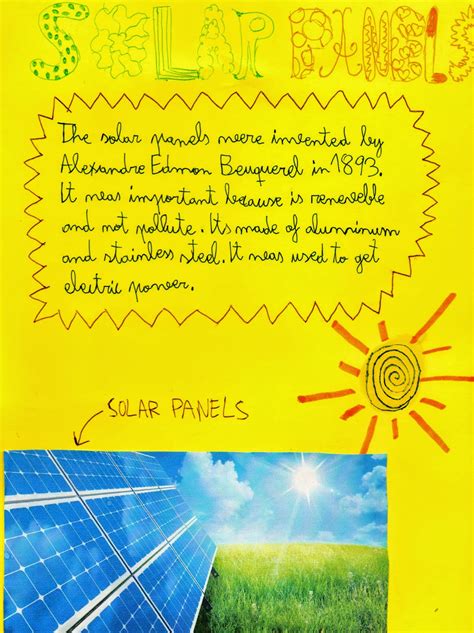 SOLAR PANELS
The solar panels were invented by
Alexandre Edmon Beuquerel in 1893.
It was important because is reneveble
and not pollute. Its made of alumninum
and stainless steel. It was used to get
electric power.
SOLAR PANELS